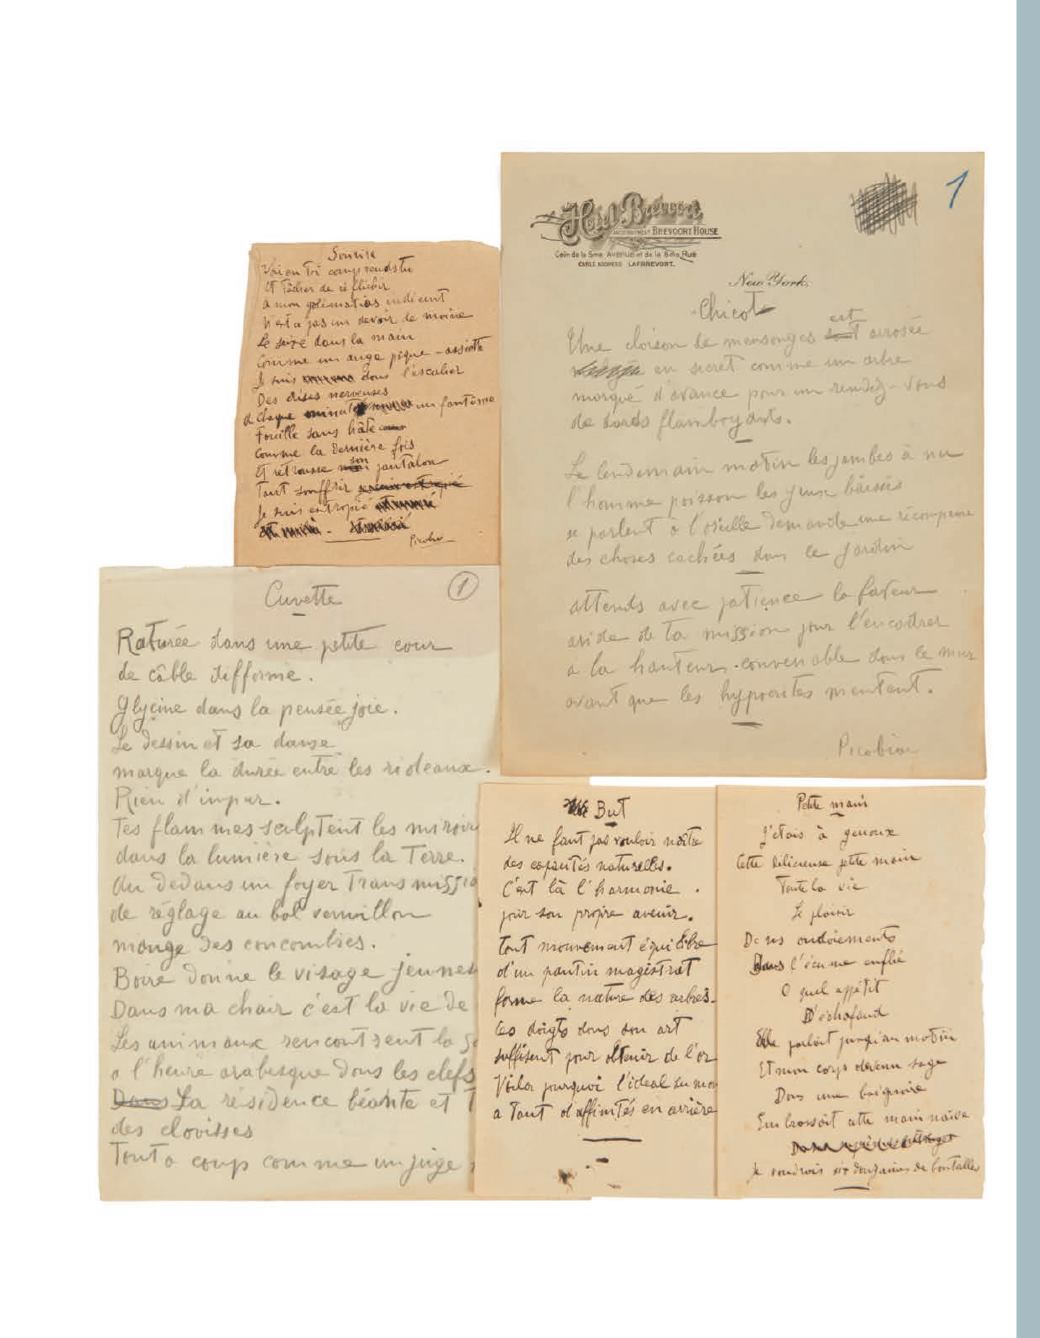 Sourire
Voi en toi comprends tu
Et tâcher de réfléchir
à mon galimatias indécent
N'est a pas un devoir de moine
Le seize dans la main
Comme un ange pique-assiette
Je suis dans l'escalier
Des crises nerveuses
à chaque minute un fantôme
Fouille sans hâte
Comme la dernière fois
Et retrousse son pantalon
Tant souffrir
Je suis estropié
Picabia
Hotel Brevort
BREVOORT HOUSE
Coin de la 5me AVENUE et de la 8me Rue
CABLE ADDRESS LAFBREVORT.
1
New York,
Chicot
Une cloison de mensonges est arrosée
en secret comme un arbre
marqué d'avance pour un rendez-vous
de bords flamboyants.
Le lendemain matin les jambes à nu
l'homme poisson les yeux baissés
se parlent à l'oseille demande une récompense
des choses cachées dans le jardin
attends avec patience la faveur
avide de ta mission pour l'encadrer
à la hauteur convenable dans le mur
avant que les hypocrites mentent.
Picabia
Cuvette
1
Raturée dans une petite cour
de câble difforme.
Glycine dans la pensée joie.
Le dessin et sa danse
marque la durée entre les rideaux.
Rien d'impur.
Tes flammes sculptent les miroirs
dans la lumière sous la Terre.
Au dedans un foyer Transmissio
de réglage au bol vermillon
mange des concombres.
Boire donne le visage jeunes
Dans ma chair c'est la vie de
Les animaux rencontrent la
à l'heure arabesque dans les clefs
Dans La résidence béante et
des clovisses
Tout à coup comme un juge
But
Il ne faut pas vouloir naître
des capacités naturelles.
C'est là l'harmonie
pour son propre avenir.
Tout mouvement équilibre
d'un pantin magistrat
forme la nature des arbres.
Les doigts dans son art
suffisent pour obtenir de l'or
Voila pourquoi l'idéal du mon
a Tant d'affinités en arrière
Petite main
J'étais à genoux
Cette délicieuse petite main
Toute la vie
Le plaisir
Dans ondoiements
Dans l'écume enflé
O quel appétit
D'échafaud
Elle parlait jusqu'au matin
Et mon corps devenu sage
Dans une baignoire
Embrassait cette main naïve
Je voudrais six douzaines de